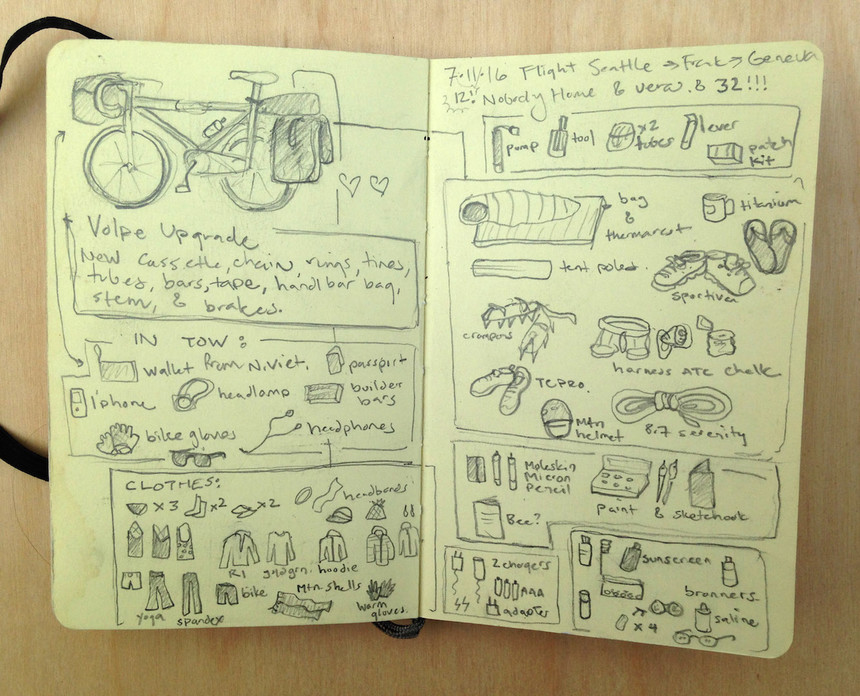 Volpe Upgrade
New Cassette, chain, rims, tires,
tubes, bars, tape, handlbar bag,
stem, & brakes.
IN TOW:
wallet from N.Viet.
passport
iphone
headlamp
builder
bars
bike gloves
headphones
CLOTHES:
x3
x2
x2
headbands
R1
hoodie
yoga
spandex
bike
Mtn. shells
warm
gloves.
7.11.16 Flight Seattle → Frnk → Geneva
12! Nobody Home & vera & 32!!!
pump
tool
x2
tubes
lever
patch
kit
bag
&
thermarest
titanium
tent poles.
sportiva
crampons
harness ATC chalk
TCPRO.
Mtn
helmet
8.7 serenity
Moleskin
Micron
Pencil
paint & sketchbook
Bee?
2 chargers
AAA
adapter
sunscreen
bronners
saline
x4